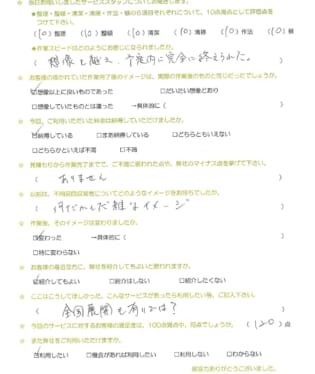 ※ 当日お伺いしましたサービススタッフについてお聞きします。
★整理・整頓・清潔・清掃・作法・躾の5項目それぞれについて、10点満点として評価点をつけて下さい。
(10) 整理 (10) 整頓 (10) 清潔 (10) 清掃 (10) 作法 (10) 躾
★作業スピードはどのようにお感じになられましたか。
( 想像を超え、予定内に完全に終えられた。 )
※ お客様の描かれていた作業完了後のイメージは、実際の作業後のものと同じだったでしょうか。
☑想像以上に良いものであった □だいたい想像どおり
□想像していたものとは違った →具体的に( )
※ 今回、ご利用いただいた料金は納得していただけましたか。
☑納得している □まあ納得している □どちらともいえない
□どちらかといえば不満 □不満
※ 見積もりから作業完了までで、ご不満に思われた点や、弊社のマイナス点を挙げて下さい。
( ありません )
※ 以前は、不用品回収業者についてどのようなイメージをお持ちでしたか。
( 何だかんだ雑なイメージ )
※ 作業後、そのイメージは変わりましたか。
☑変わった →具体的に( )
□特に変わらない
※ お客様の身近な方に、弊社を紹介してもよいと思われますか。
☑紹介してもよい □紹介はしない □紹介したくない
※ ここはこうしてほしかった、こんなサービスがあったら利用したい等、ご記入下さい
( 全国展開も有りでは? )
※ 今回のサービスに対するお客様の満足度は、100点満点中、何点でしょうか。 (120) 点
※ また弊社をご利用いただけますか。
☑利用したい □機会があれば利用したい □利用しない □わからない
ご協力ありがとうございました。